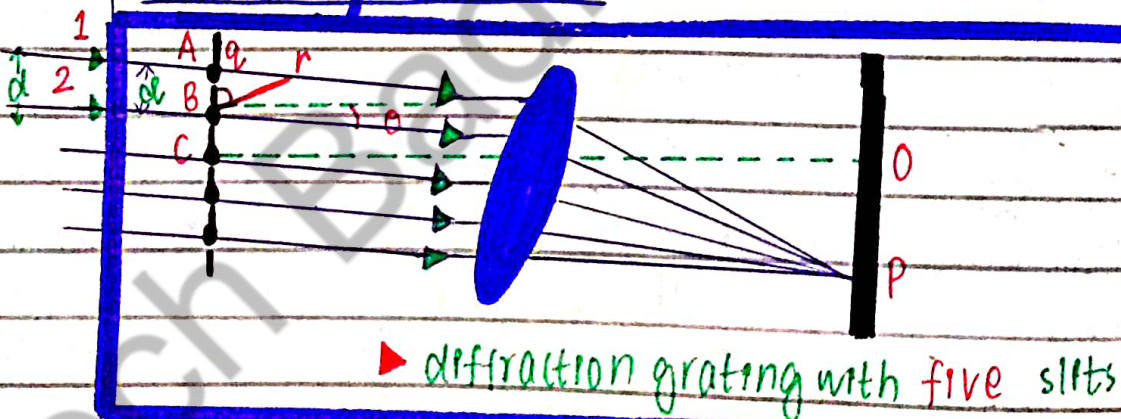 1
A
q
r
d
2
d
B
θ
C
O
P
diffraction grating with five slits